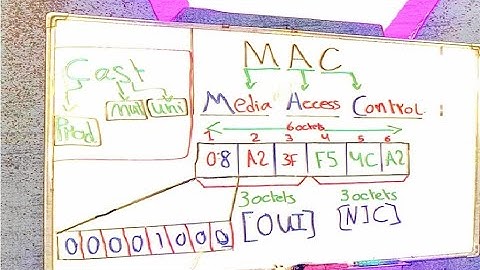 Cast
Mult Uni
MAC
Media Access Control
6 octets
1 2 3 4 5 6
08 A2 3F F5 4C A2
3 octets 3 octets
[OUI] [NIC]
0 0 0 0 1 0 0 0